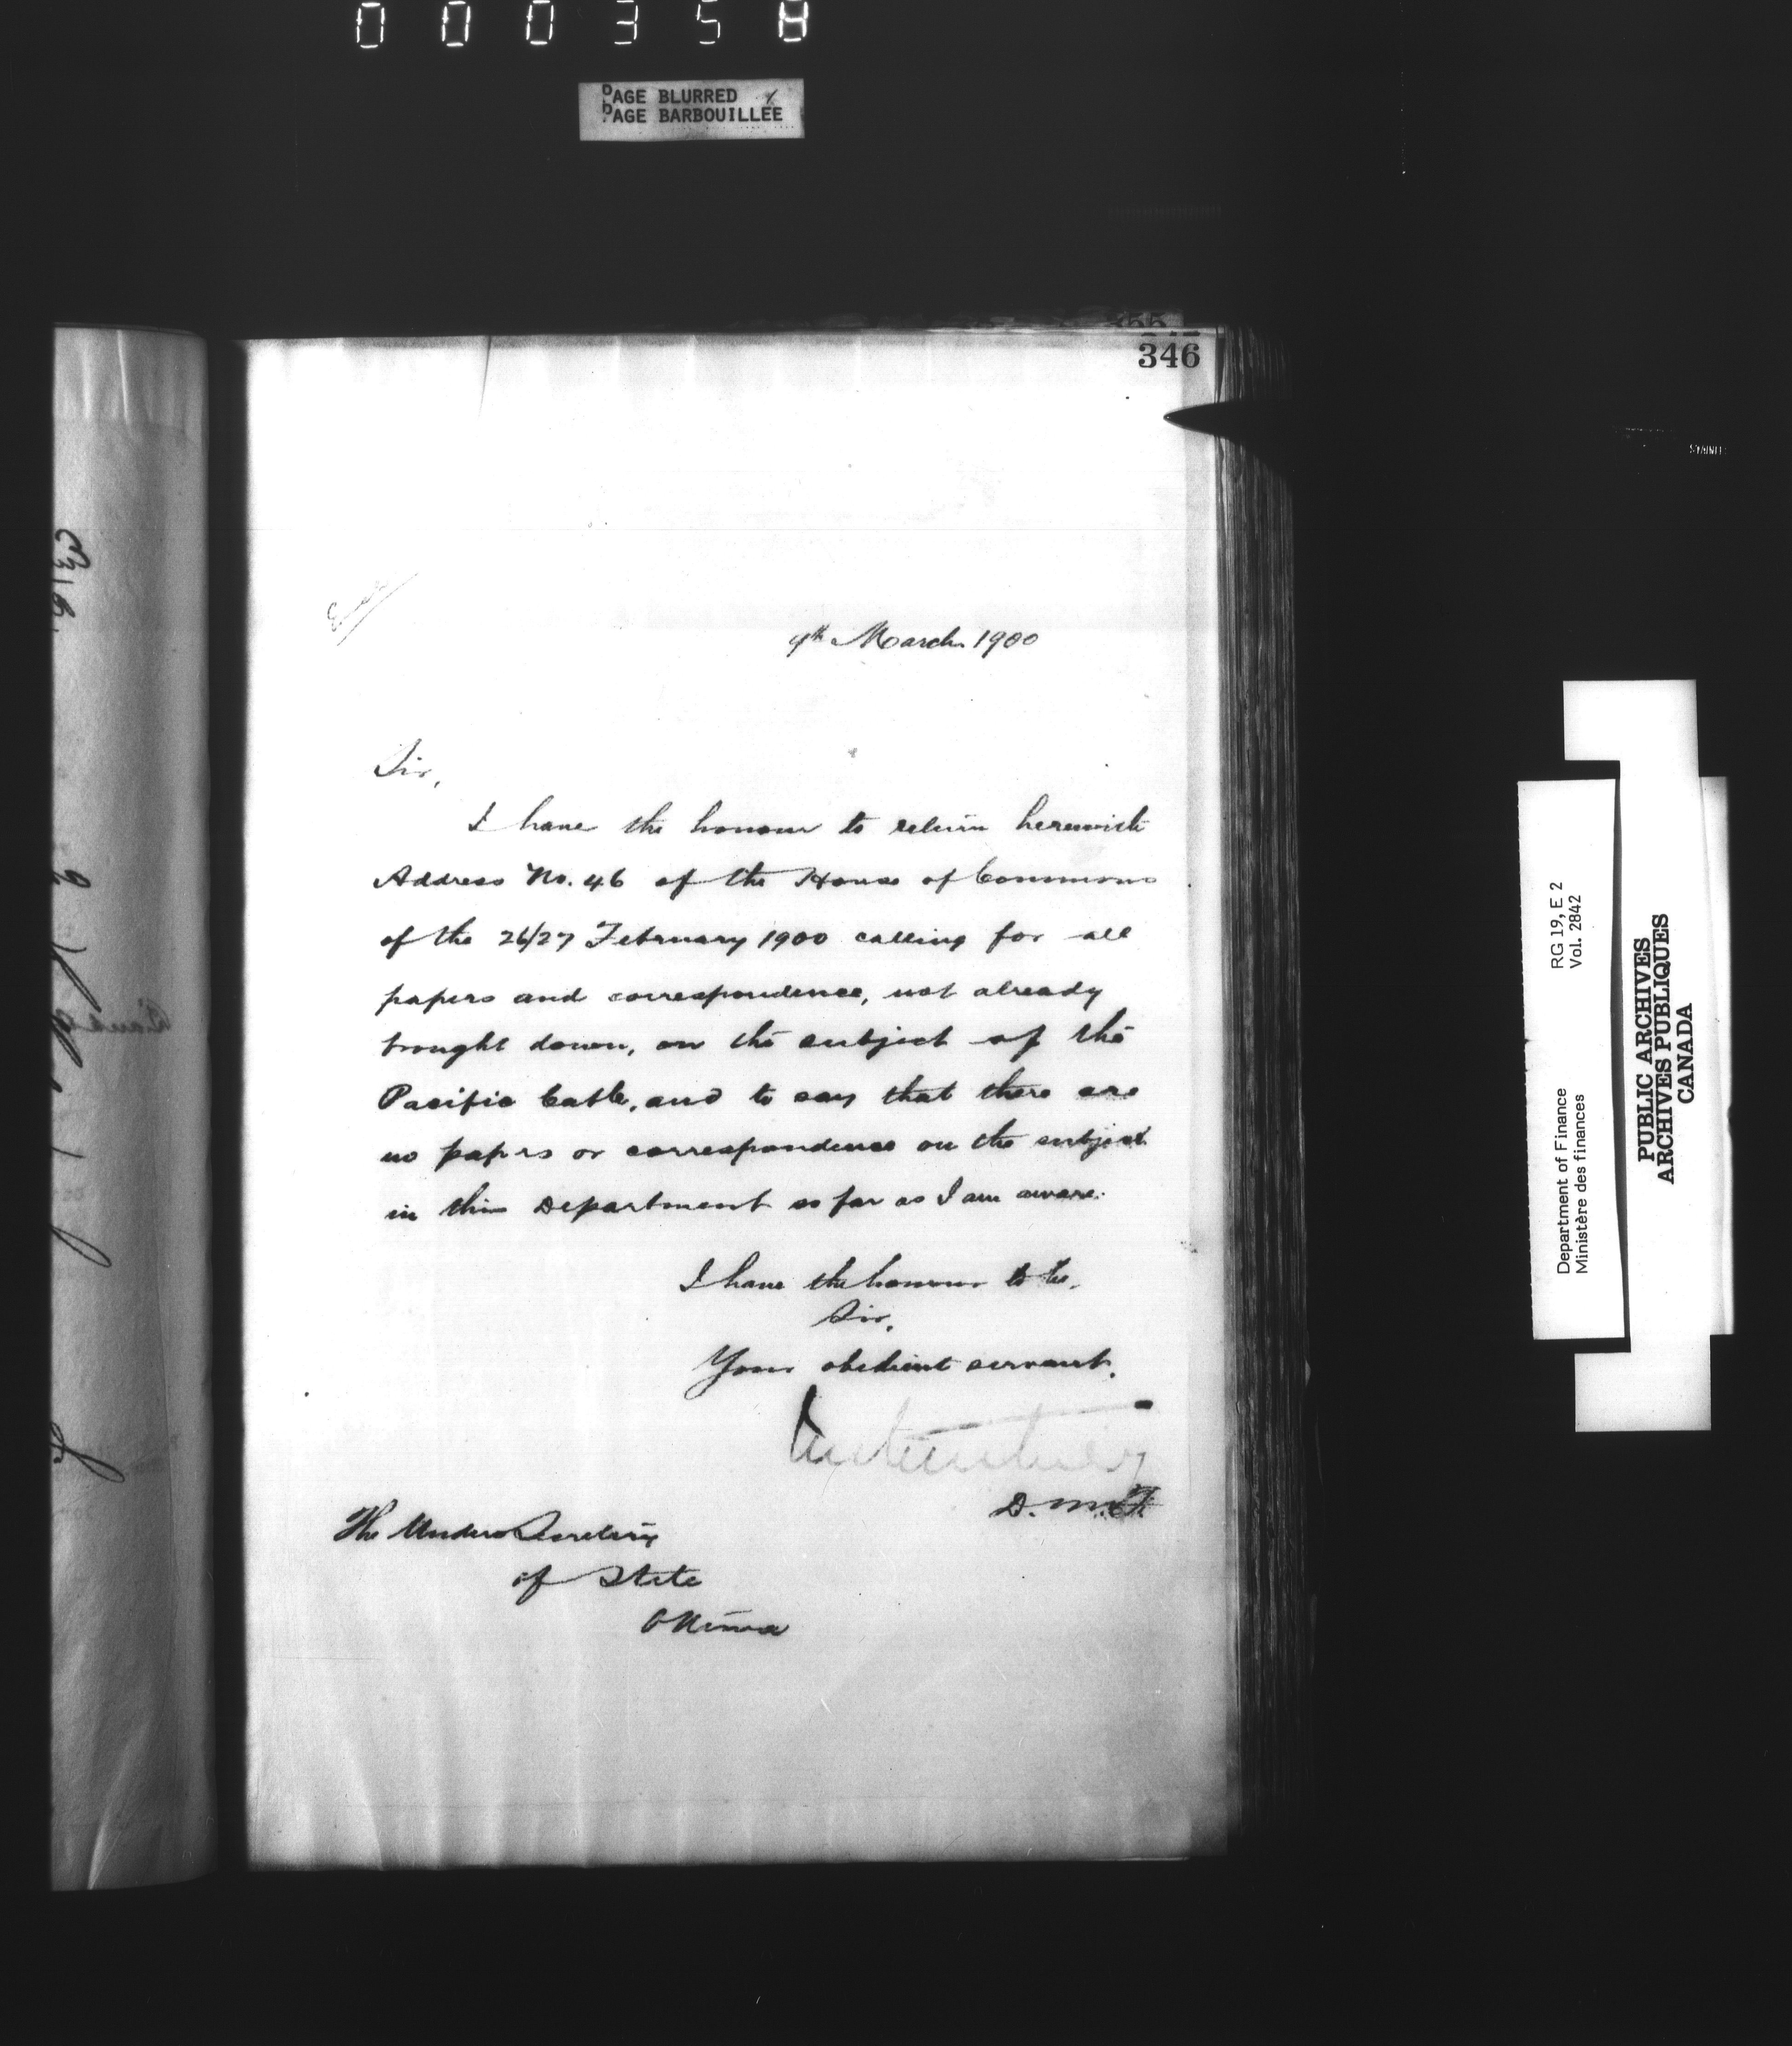 000358
PAGE BLURRED
PAGE BARBOUILLEE
346
9th March 1900
Sir,
I have the honour to return herewith
Address No. 46 of the House of Commons
of the 26/27 February 1900 calling for all
papers and correspondence, not already
brought down, on the subject of the
Pacific Cable, and to say that there are
no papers or correspondence on the subject
in this Department so far as I am aware.
I have the honour to be,
Sir,
Your obedient servant,
D.M.F.
The Under Secretary
of State
Ottawa
RG 19, E 2
Vol. 2842
Department of Finance
Ministère des finances
PUBLIC ARCHIVES
ARCHIVES PUBLIQUES
CANADA